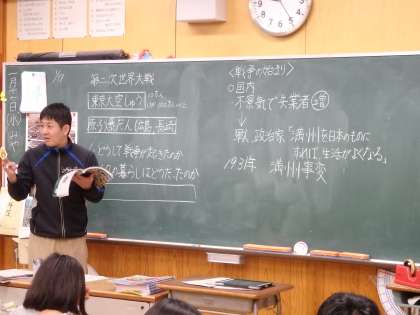 1/17
第二次世界大戦
東京大空しゅう
原子爆だん(広島、長崎)
どうして戦争が起きたのか
の暮らしはどうだったのか
<戦争の始まり>
○国内
不景気で失業者 増
↓
軍人、政治家「満州を日本のものに
すれば、生活がよくなる」
1931年 満州事変